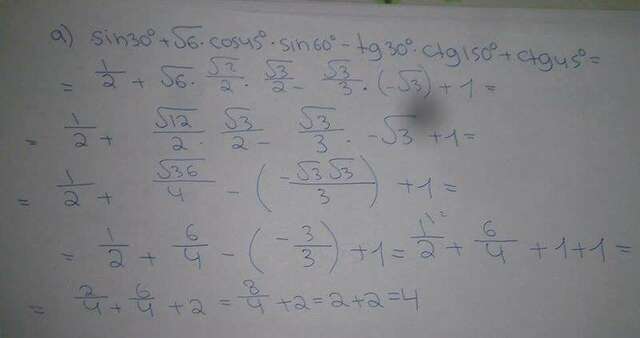 a) sin30° + √6 · cos45° · sin60° - tg30° · ctg150° + ctg45° =
= 1/2 + √6 · √2/2 · √3/2 - √3/3 · (-√3) + 1 =
= 1/2 + √12/2 · √3/2 - √3/3 · -√3 + 1 =
= 1/2 + √36/4 - (-√3√3/3) + 1 =
= 1/2 + 6/4 - (-3/3) + 1 = 1/2 + 6/4 + 1 + 1 =
= 2/4 + 6/4 + 2 = 8/4 + 2 = 2 + 2 = 4